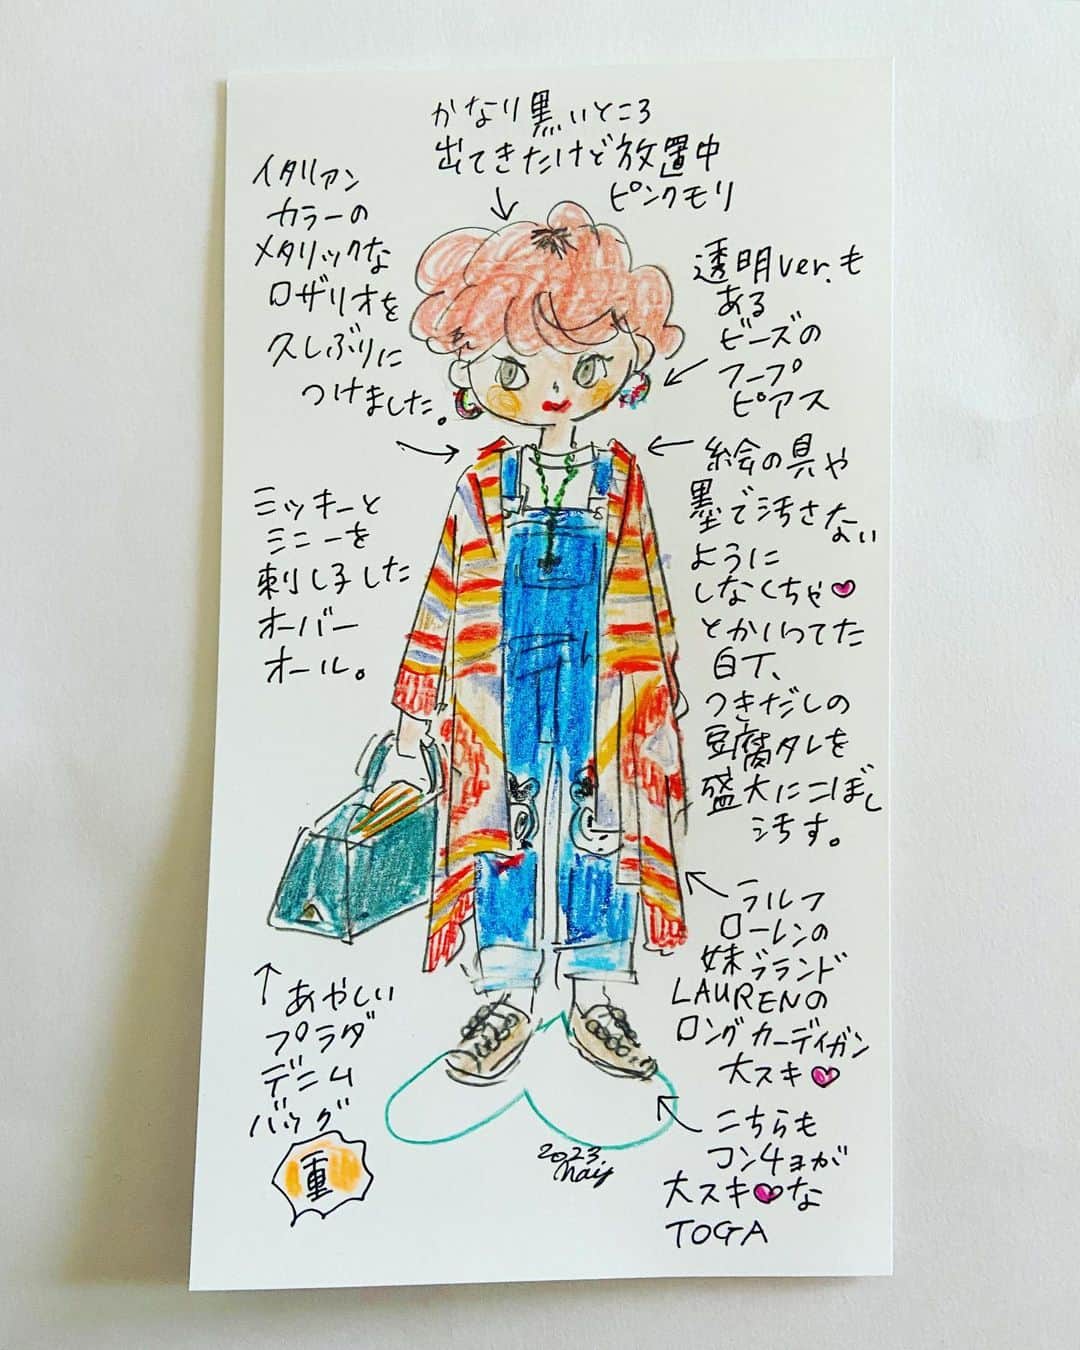 かなり黒いところ
出てきたけど放置中
ピンクモリ
イタリアン
カラーの
メタリックな
ロザリオを
久しぶりに
つけました。
透明ver.も
ある
ビーズの
フープ
ピアス
ミッキーと
ミニーを
刺し子した
オーバー
オール。
絵の具や
墨で汚さない
ように
しなくちゃ
とかいってた
白T、
つきだしの
豆腐タレを
盛大にこぼし
汚す。
ラルフ
ローレンの
妹ブランド
LAURENの
ロングカーディガン
大スキ
あやしい
プラダ
デニム
バッグ
重
こちらも
コンチョが
大スキな
TOGA
2023